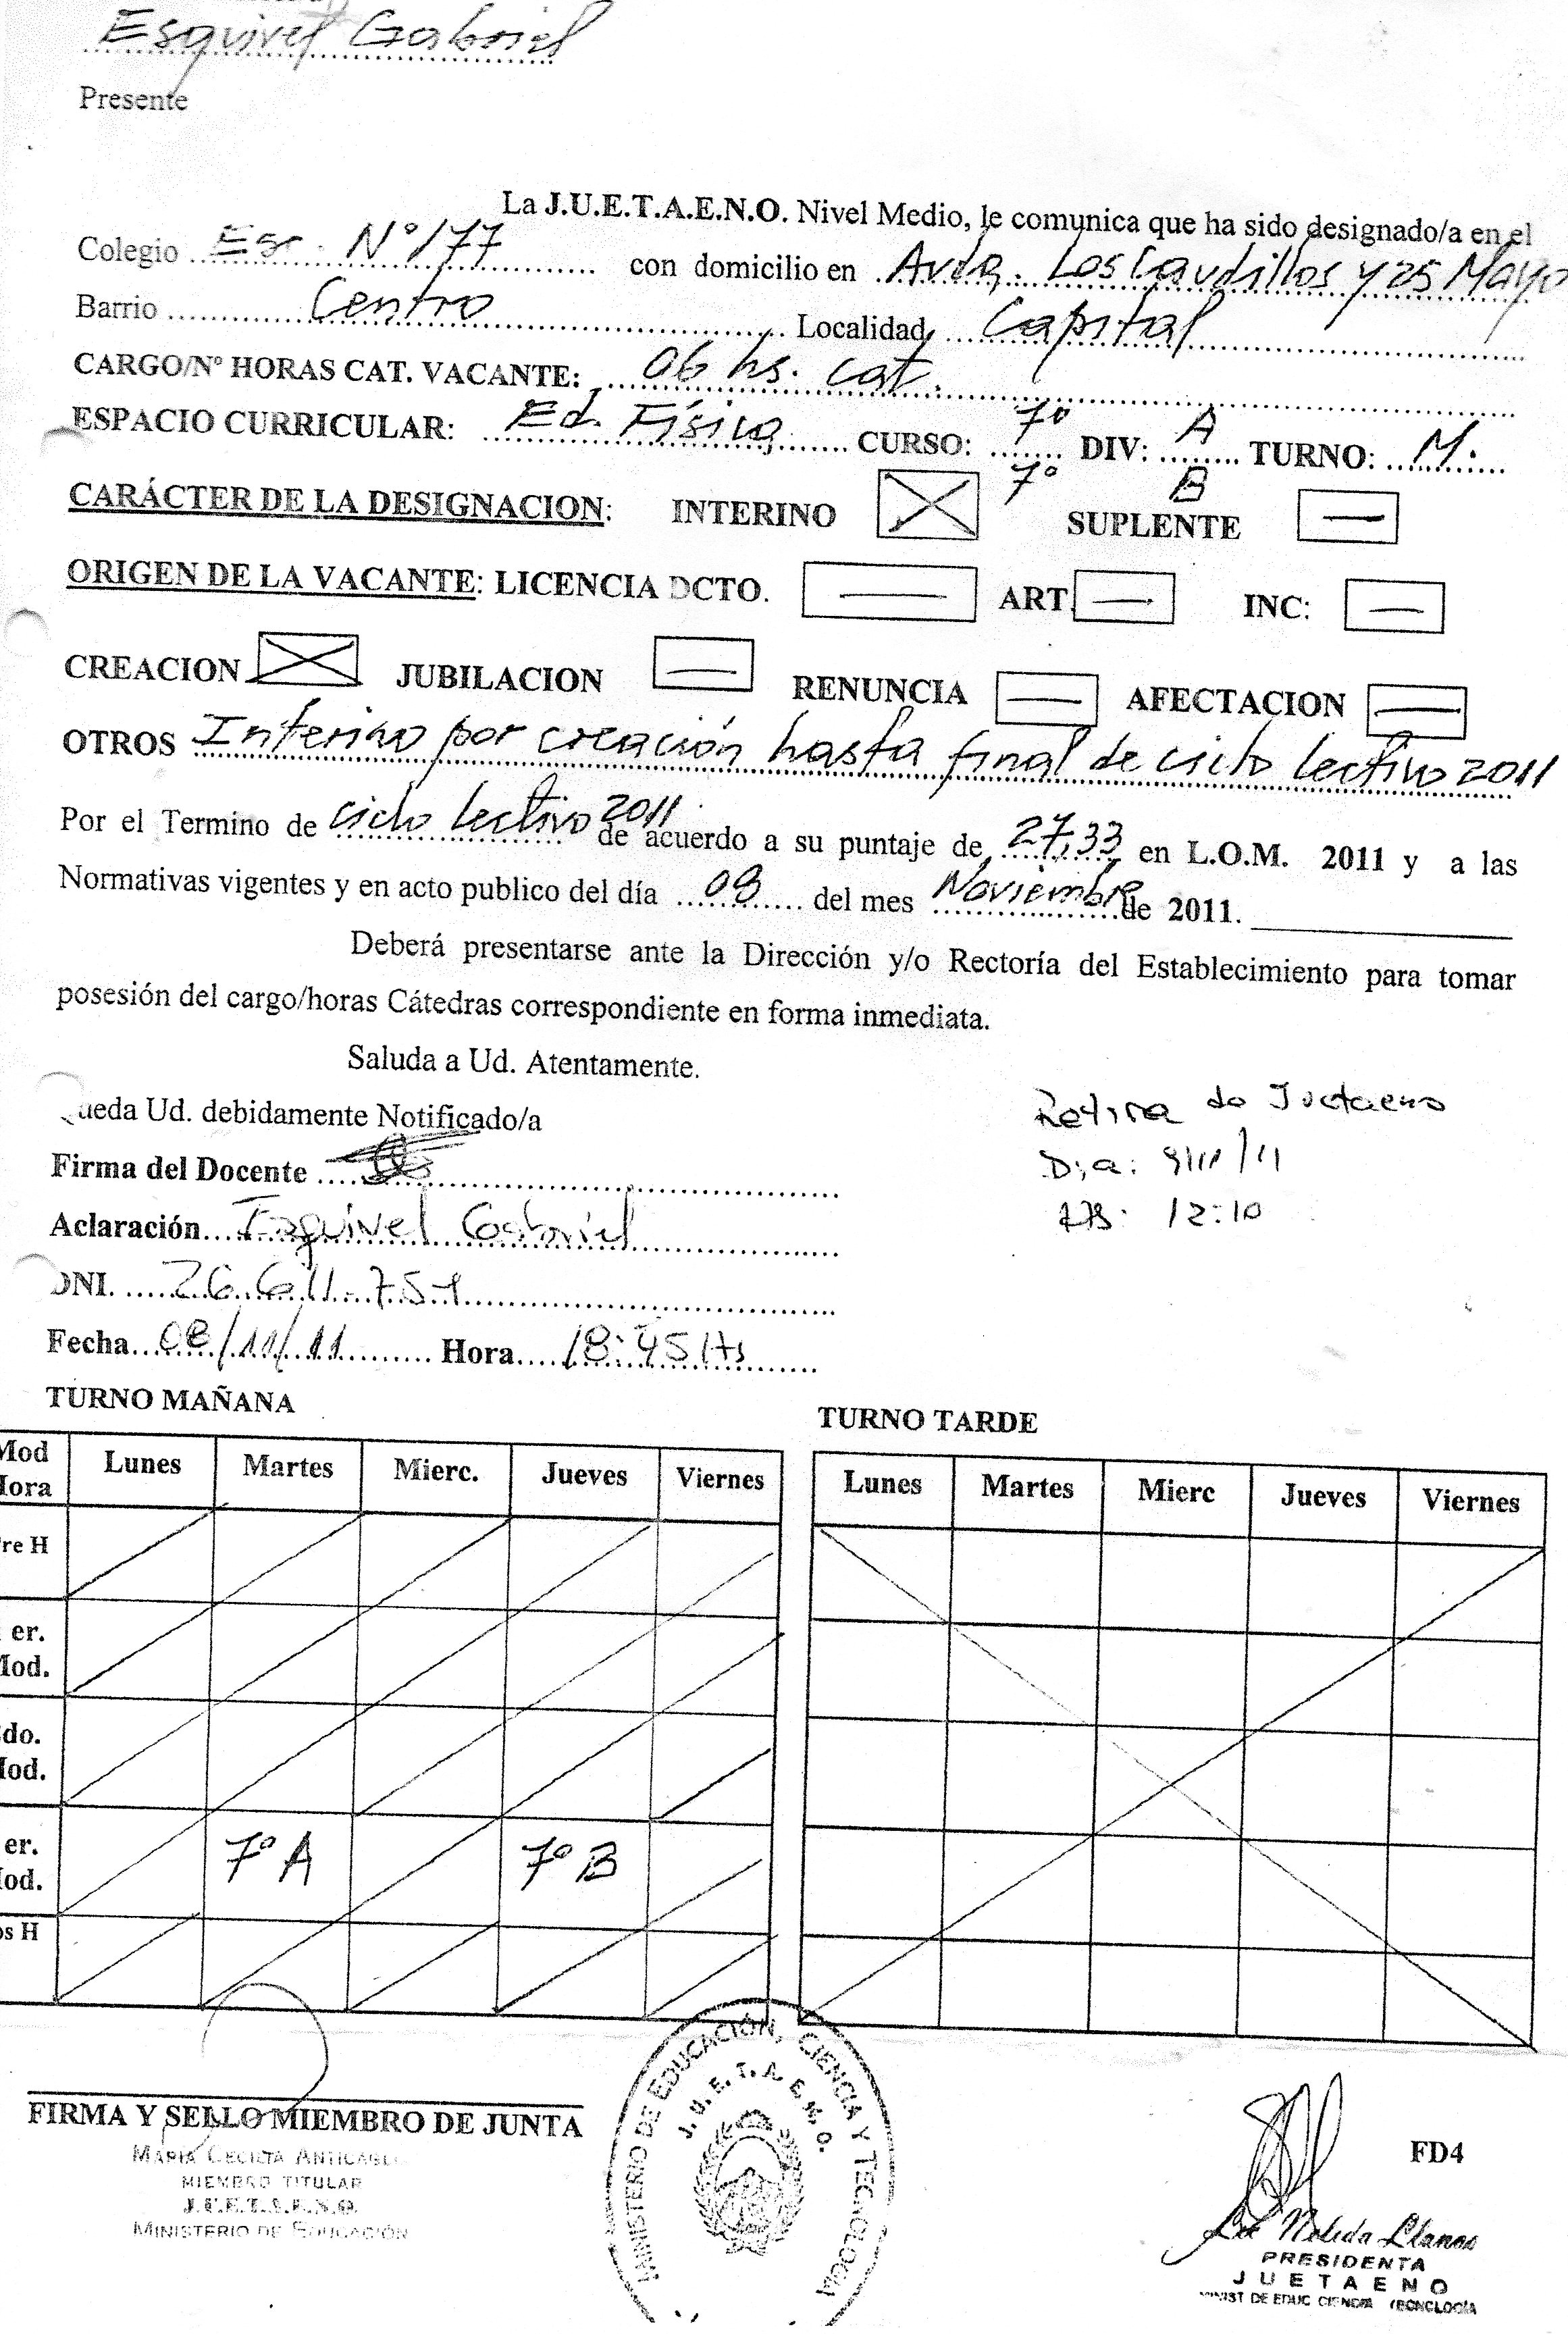 Esquivel Gabriel
Presente
La J.U.E.T.A.E.N.O. Nivel Medio, le comunica que ha sido designado/a en el
Colegio Esc. N° 177 con domicilio en Avda. Los Caudillos y 25 Mayo
Barrio Centro Localidad Capital
CARGO/N° HORAS CAT. VACANTE: 06 hs. cat.
ESPACIO CURRICULAR: Ed. Física CURSO: 7° DIV: A TURNO: M.
7° B
CARÁCTER DE LA DESIGNACION: INTERINO SUPLENTE
ORIGEN DE LA VACANTE: LICENCIA DCTO. ART. INC:
CREACION JUBILACION RENUNCIA AFECTACION
OTROS Interino por creación hasta final de ciclo lectivo 2011
Por el Termino de ciclo lectivo 2011 de acuerdo a su puntaje de 27,33 en L.O.M. 2011 y a las
Normativas vigentes y en acto publico del día 08 del mes Noviembre de 2011.
Deberá presentarse ante la Dirección y/o Rectoría del Establecimiento para tomar
posesión del cargo/horas Cátedras correspondiente en forma inmediata.
Saluda a Ud. Atentamente.
ueda Ud. debidamente Notificado/a
Retira de Juetaeno
Dia: 9/11/11
Hs: 12:10
Firma del Docente
Aclaración Esquivel Gabriel
DNI. 26.611.751
Fecha 08/11/11 Hora 18:45 Hs
TURNO MAÑANA
Mod Hora Lunes Martes Mierc. Jueves Viernes
re H
er. Mod.
do. Mod.
er. Mod. 7° A 7° B
os H
TURNO TARDE
Lunes Martes Mierc Jueves Viernes
FIRMA Y SELLO MIEMBRO DE JUNTA
MARIA CECILIA
MIEMBRO TITULAR
J.U.E.T.A.E.N.O.
MINISTERIO DE EDUCACIÓN
MINISTERIO DE EDUCACIÓN, CIENCIA Y TECNOLOGIA
J.U.E.T.A.E.N.O.
FD4
Lic. Nélida Llanos
PRESIDENTA
JUETAENO
MINIST DE EDUC CIENCIA TECNOLOGÍA